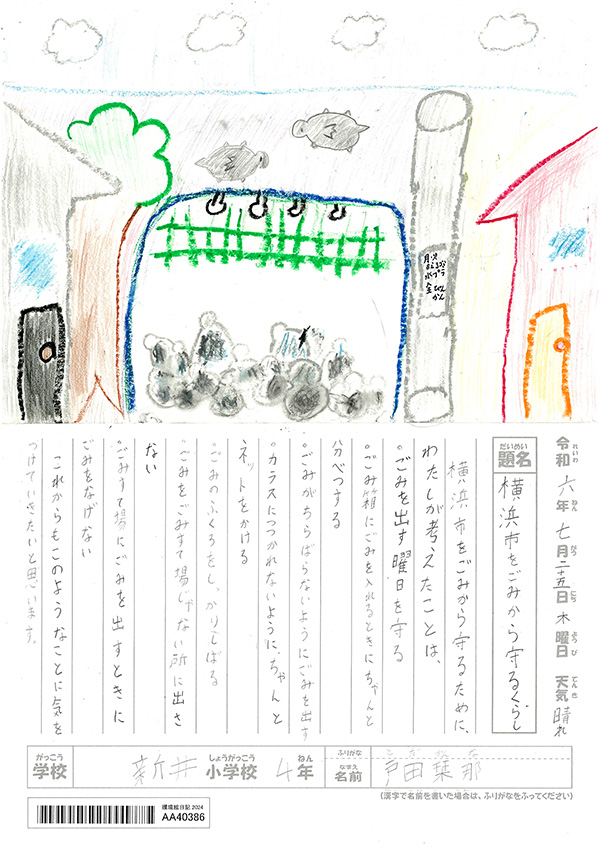 令和六年七月二十五日木曜日 天気晴れ
れいわ ねん がつ にち ようび てんき
だいめい
題名 横浜市をごみから守るくらし
横浜市をごみから守るために、
わたしが考えたことは、
。ごみを出す曜日を守る
。ごみ箱にごみを入れるときにちゃんと
分べつする
。ごみがちらばらないようにごみを出す
。カラスにつつかれないように、ちゃんと
ネットをかける
。ごみのふくろをしっかりしばる
。ごみをごみすて場じゃない所に出さ
ない
。ごみすて場にごみを出すときに
ごみをなげない
これからもこのようなことに気を
つけていきたいと思います。
がっこう しょうがっこう ねん ふりがな なまえ
学校 新井 小学校 4年 名前 戸田栞那
(漢字で名前を書いた場合は、ふりがなをふってください)
環境絵日記 2024
AA40386